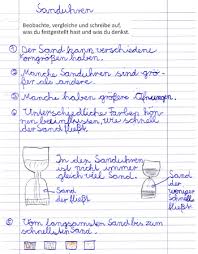 Sanduhren
Beobachte, vergleiche und schreibe auf,
was du festgestellt hast und was du denkst.
① Der Sand kann verschiedene
korngroßen haben.
② Manche Sanduhren sind grö-
ßer als andere.
③ Manche haben größere Öfnungen.
④ Unterschiedliche Farben kön-
nen beeinflussen, wie schnell
der Sand fließt.
In den Sanduhren
ist nicht immer
gleich viel Sand.
Sand
der fließt
Sand
der
weniger
schnell
fließt.
⑤ Vom langsamsten Sand bis zum
schnellsten Sand